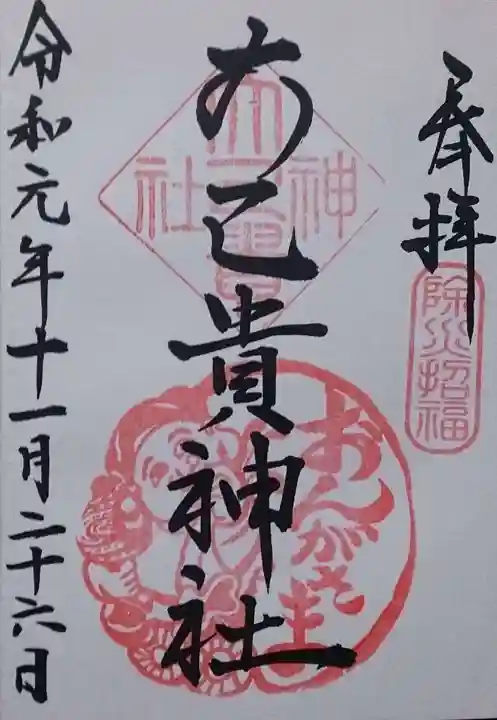 奉拝
除災招福
大己貴神社
大己貴
神社
おんがさま
令和元年十一月二十六日